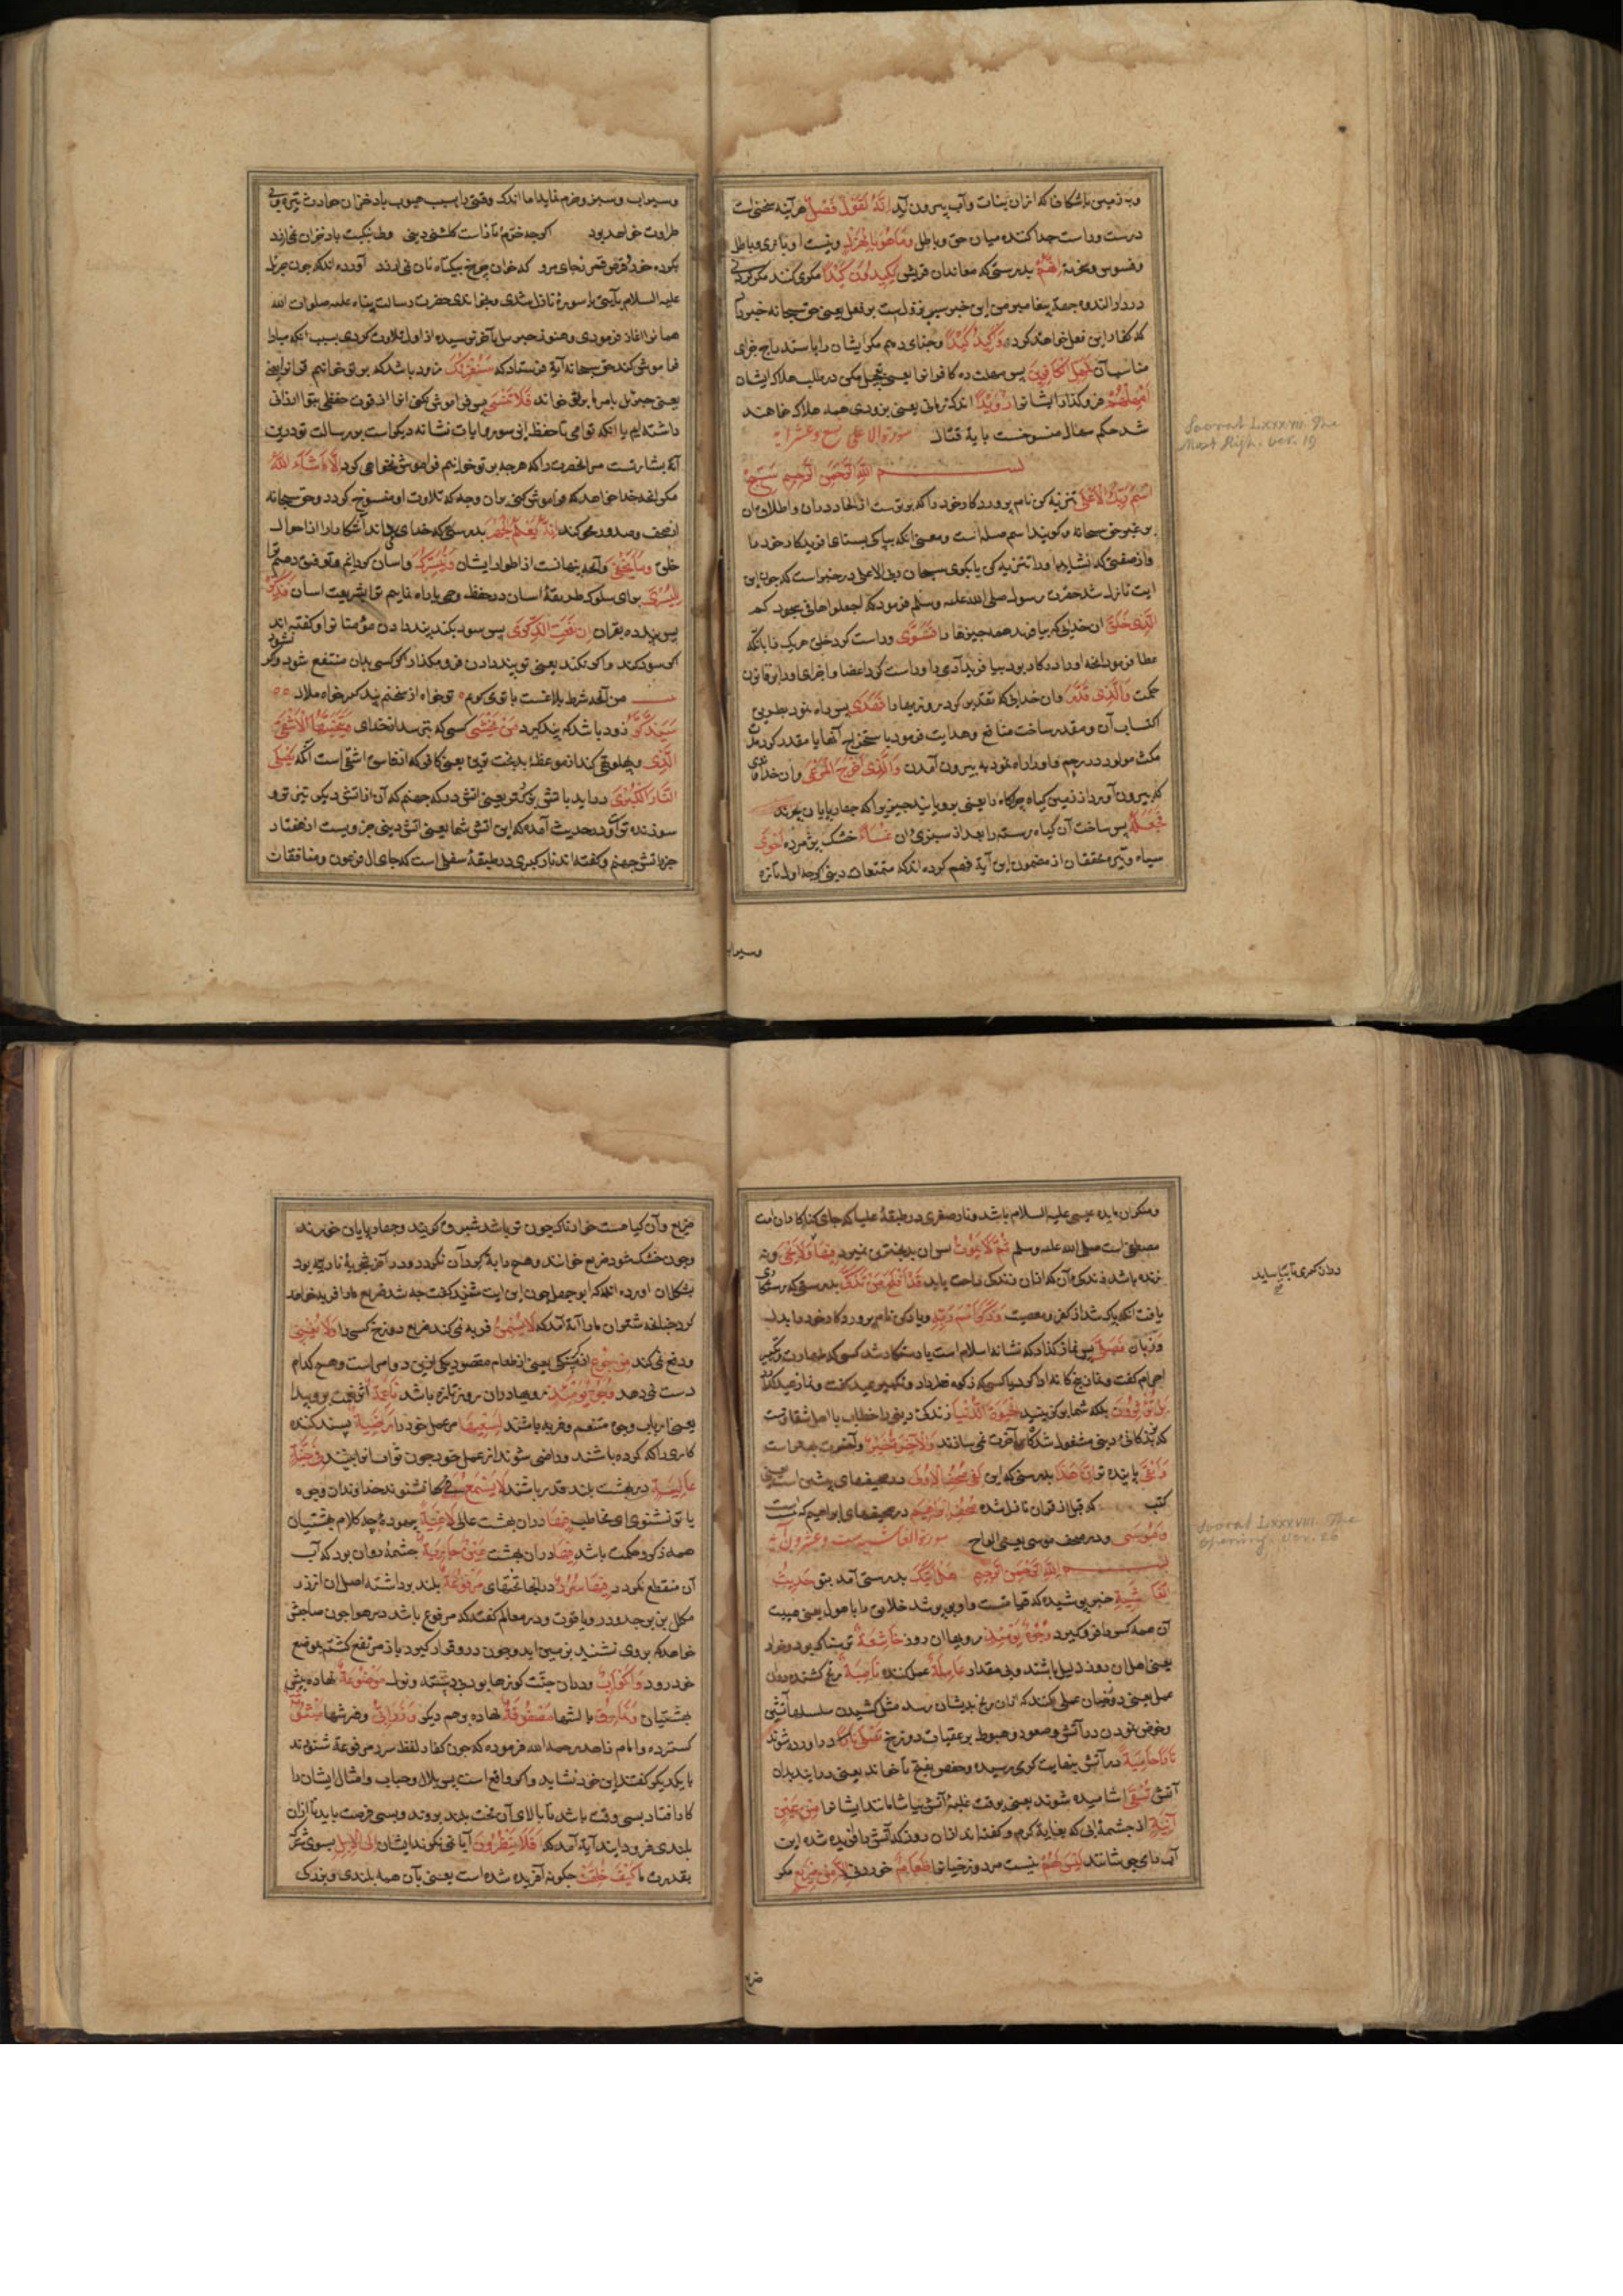 وبه زمین باشکافها که ازان نبات وآب بیرون آید اِنَّهُ لَقَوْلٌ فَصْلٌ هر آینه سخنی است
درست وراست جدا کننده میان حق وباطل وَمَا هُوَ بِالْهَزْلِ ونیست او بازی وباطل
وفسوس وسخریة اِنَّهُمْ بدرستی که معاندان قریش یَکِیدُونَ کَیْدًا مکر می کنند مکر کردنی
در دار الندوه جهة پیغامبر من این خبر پیش از وقوع فعل یعنی حق سبحانه خبر داد
که کفار این فعل خواهند کرد وَاَکِیدُ کَیْدًا وجزای دهم مکر ایشان را باستدراج جزای
مناسب آن فَمَهِّلِ الْکَافِرِینَ پس مهلت ده کافرانرا یعنی تعجیل مکن در طلب هلاک ایشان
اَمْهِلْهُمْ فرو گذار ایشانرا رُوَیْدًا اندک زمانی یعنی بزودی همه هلاک خواهند
شد حکم امهال منسوخست بایة قتال سورة الاعلی تسع وعشر ایة
بســـم اللَّهِ الرَّحْمَنِ الرَّحِیمِ سَبِّحِ
اسْمَ رَبِّکَ الْاَعْلَی تنزیه کن نام پروردکار خود را که برترست از الحاد دران واطلاق آن
بر غیر حق سبحانه وکویند اسم صله است ومعنی آنکه بپاکی بستای آفریدکار خود را
ایت نازل شد حضرت رسول صلی الله علیه وسلم فرمود که اجعلوها فی سجودکم
الَّذِی خَلَقَ ان خدایی که بیافرید همه چیزها را فَسَوَّی وراست کرد خلق هریک را بآنکه
حکمت وَالَّذِی قَدَّرَ وان خدایی که تقدیر کرد روزیها را فَهَدَی پس راه نمود بطریق
اکتساب آن ومقدر ساخت منافع وهدایت فرمود باستخراج آنها یا مقدر کرد مدت
مکث مولود در رحم واورا راه نمود به بیرون آمدن وَالَّذِی اَخْرَجَ الْمَرْعَی وآن خدای
که بیرون آورد از زمین کیاه چراکاه را یعنی برویانید چیزیرا که چهارپایان بچرند
فَجَعَلَهُ پس ساخت آن کیاه رسته را بعد از سبزی ان غُثَاءً خشک پژمرده اَحْوَی
سیاه وتیره محققان از مضمون این آیة فهم کرده اند که متمتعات دنیی کرچه اول تازه
وسیراب
Soorat LXXXVII. The
Most High. ver. 19
وسیراب وسبز وخرم نماید اما اندک وقتی را بسبب هبوب باد خزان حادث تیره وبی
طراوت خواهد بود کرچه خرّم تازه است کلشن دنیی ولی بنکبت باد خزان نمی ارزد
علیه السلام بآیتی یا سورة نازل شدی وبخواندی حضرت رسالت پناه علیه صلوات الله
همانرا اغاز فرمودی وهنوز جبرییل بآخر نرسیده از اول تلاوت کردی بسبب آنکه مبادا
فراموش کند حق سبحانه آیة فرستاد که سَنُقْرِئُکَ زود باشد که بر تو خوانیم قرانرا یعنی
یعنی جبرییل بامر ما بر تو خواند فَلَا تَنْسَی پس فراموش نکنی انرا از قوت حفظی بتو ارزانی
داشته ایم یا آنکه تو امی تا حفظ این سور وایات نشانه دیکر است بر رسالت تو درین
آیة بشارتست مر آنحضرت را که هرچه بر تو خوانیم فراموش نخواهی کرد اِلَّا مَا شَآءَ اللَّهُ
مکر آنچه خدا خواهد که فراموش کنی بران وجه که تلاوت او منسوخ کردد وحق سبحانه
از صحف وصدور محو کند اِنَّهُ یَعْلَمُ الْجَهْرَ بدرستی که خدای میداند آشکارا را از احوال
خلق وَمَا یَخْفَی وآنچه پنهانست از اطوار ایشان وَنُیَسِّرُکَ واسان کردانیم وتوفیق دهیم ترا
لِلْیُسْرَی برای سلوک طریقة اسان در حفظ وحی یا راه نماییم ترا بشریعت اسان فَذَکِّرْ
پس پند ده بقران اِنْ نَفَعَتِ الذِّکْرَی پس سود بکند پند دادن مؤمنانرا وکفته اند
اکر سود کند واکر نکند یعنی تو پند دادن فرو مکذار اکر کسی بدان منتفع شود واکر نشود
من آنچه شرط بلاغست با تو می کویم تو خواه از سخنم پند کیر خواه ملال
سَیَذَّکَّرُ زود باشد که پند کیرد مَنْ یَخْشَی کسی که بترسد از خدای وَیَتَجَنَّبُهَا الْاَشْقَی
الَّذِی وپهلو تهی کند از موعظة بدبخت ترین یعنی کافر که از فاسق اشقی است آنکه یَصْلَی
النَّارَ الْکُبْرَی دراید باتش بزرکتر یعنی اتش درکه جهنم که آن از اتش دیکر تیزتر و
سوزنده تر آمد ودر حدیث آمده که این اتش شما یعنی اتش دنیی جزویست از هفتاد
جزو اتش جهنم وکفته اند نار کبری در طبقة سفلی است که جای آل فرعون ومنافقان
ومنکران مایده عیسی علیه السلام باشد ونار صغری در طبقة علیا که جای کناهکاران امت
مصطفی است صلی الله علیه وسلم ثُمَّ لَا یَمُوتُ پس ان بدبخت ترین نمیرد فِیهَا وَلَا یَحْیَی ونه
زنده باشد زندکی آن که ازان زندکی راحت یابد قَدْ اَفْلَحَ مَنْ تَزَکَّی بدرستی که رستکاری
یافت آنکه پاک شد از کفر ومعصیت وَذَکَرَ اسْمَ رَبِّهِ ویاد کرد نام پروردکار خود را بدل
وزبان فَصَلَّی پس نماز کذارد که نشانة اسلام است یا رستکار شد کسی که طهارت وتکبیر
احرام کفت ونماز پنج کانه ادا کرد یا کسی که زکوة فطر داد وتکبیر عید کفت ونماز عید کذارد
بَلْ تُؤْثِرُونَ بلکه شما برکزینید حَیٰوةَ الدُّنْیَا زندکی دنیی را خطاب با اهل شقاوتست
که بزندکانی دنیی مشغول شده کار آخرت نمی سازند وَالْاٰخِرَةُ خَیْرٌ وآخرت بهتر است
وَاَبْقَی پاینده تر اِنَّ هَذَا بدرستی که این لَفِی الصُّحُفِ الْاُولَی در صحیفهای پیشین است یعنی
کتب که قبل از قران نازل شده صُحُفِ اِبْرَاهِیمَ در صحیفهای ابراهیم که است
وَمُوسَی ودر صحف موسی یعنی الواح سورة الغاشیه ست وعشرون آیة
بســـم اللَّهِ الرَّحْمَنِ الرَّحِیمِ هَلْ اَتَیکَ بدرستی آمد بتو حَدِیثُ
الْغَاشِیَةِ خبر پوشیده که قیامتست واو بپوشد خلایق را باهوال یعنی هیبت
آن همه کس را فرو کیرد وُجُوهٌ یَوْمَئِذٍ رویها ان روز خَاشِعَةٌ ترسناک بود وخوار
یعنی اهل ان روز ذلیل باشند وبی مقدار عَامِلَةٌ عمل کننده نَاصِبَةٌ رنج کشنده دران
عمل یعنی دوزخیان عملی کنند که ازان رنج بدیشان رسد مثل کشیدن سلسلهای آتشین
وخوض نمودن در آتش وصعود وهبوط بر عقبات دوزخ تَصْلَی نَارًا در آورده شوند
نَارًا حَامِیَةً در آتش بنهایت کرمی رسیده وحفص بفتح تا خواند یعنی درایند بدان
آتش تُسْقَی آشامیده شوند یعنی بوقت غلبة آتش بیاشامانند ایشانرا مِنْ عَیْنٍ
اٰنِیَةٍ از چشمة آبی که بغایة کرم وکفته اند ازان روز که آتش را افریده شده این
آب را می جوشانند لَیْسَ لَهُمْ نیست مر دوزخیانرا طَعَامٌ خوردنی اِلَّا مِنْ ضَرِیعٍ مکر
ضریع
Soorat LXXXVIII. The
opening. ver. 26
ضریع وآن کیاهست خارناک چون تر باشد شبرق کویند وچهارپایان خورند
وچون خشک شود ضریع خوانند وهیچ دابة کرد آن نکردد ودر آخر شجرة نار بود
بشکل ان آورده اند که ابوجهل چون این ایت شنید کفت چه شد ضریع مارا فربه خواهد
کرد چنانچه شتران مارا آیة آمد که لَا یُسْمِنُ فربه نمی کند ضریع دوزخ کسی را وَلَا یُغْنِی
ودفع نمی کند مِنْ جُوعٍ از کرسنکی یعنی از طعام مقصود یکی ازین دو امر است وهیچ کدام
دست نمی دهد وُجُوهٌ یَوْمَئِذٍ رویها دران روز تازه باشد نَاعِمَةٌ اثر نعمت برو پیدا
یعنی ارباب وجوه متنعم وفربه باشند لِسَعْیِهَا مر عمل خود را رَاضِیَةٌ پسند کننده
کاری را که کرده باشند وراضی شوند از عمل خود چون ثواب انرا بینند فِی جَنَّةٍ
عَالِیَةٍ در بهشت بلند قدر باشند لَا یُسْمَعُ فِیهَا نشنوند خداوندان وجوه
یا تو نشنوی ای مخاطب فِیهَا دران بهشت عالی لَاغِیَةٌ بیهوده چه کلام بهشتیان
همه ذکر وحکمت باشد فِیهَا دران بهشت عَیْنٌ جَارِیَةٌ چشمة روان بود که آب
آن منقطع نکردد فِیهَا سُرُرٌ درانجا تختهای مَرْفُوعَةٌ بلند برداشته اصل ان از زر
مکلل بزبرجد ودر ویاقوت ودر معالم کفته که مرفوع باشد در هوا چون صاحبش
خواهد که بر وی نشیند بزمین آید وچون درو قرار کیرد باز مرتفع کشته بموضع
خود رود وَاَکْوَابٌ ودران جنّت کوزها بود بی دسته ونوله مَوْضُوعَةٌ نهاده پیش
بهشتیان وَنَمَارِقُ بالشها مَصْفُوفَةٌ نهاده برهم دیکر وَزَرَابِیُّ وفرشها مَبْثُوثَةٌ
کسترده وامام زاهد رحمه الله فرموده که چون کفار لفظ سرر مرفوعة شنودند
با یکدیکر کفتند این خود نشاید واکر واقع است پس بلال وخباب وامثال ایشان را
کار افتاد بسی وقت باشد تا بالای آن تخت بلند بروند وبسی فرصت باید تا ازان
بلندی فرود ایند آیة آمد که اَفَلَا یَنْظُرُونَ آیا نمی نکرند ایشان اِلَی الْاِبِلِ بسوی شتر
بقدرت ما کَیْفَ خُلِقَتْ چکونه آفریده شده است یعنی بآن همه بلندی وبزرکی